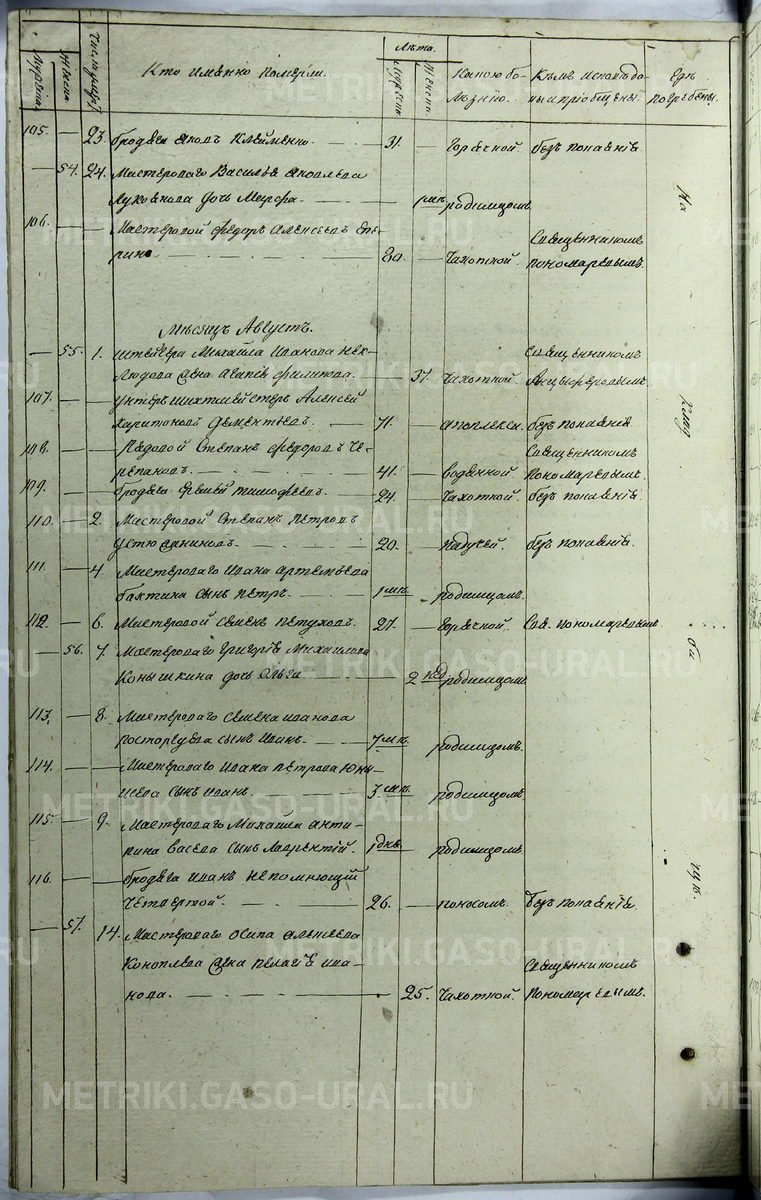 Мужеска Женска Число умерш. Кто именно померли. Лѣта. Мужеска Женска Какою бо- Кѣмъ исповѣдо- Гдѣ
лѣзнію. ны и пріобщены. погребены.
105. — 23. бродяга 31. — горячкой. безъ покаенія.
— 54. 24. Мастероваго Василья
дочь Марфа. — 1 мѣ. родимцомъ.
106. — Мастеровой Федоръ Алексеевъ
80. — Чахоткой. Священникомъ
Пономаревымъ.
На
Месяцъ Августъ.
— 55. 1. Михайла Иванова Нек-
людова жена Агапія Филипова. — 37. Чахоткой. Священникомъ
107. — унтеръ шихтмейстеръ Алексей
Харитоновъ Дементьевъ. 71. — апоплекси. безъ покаенія.
108. — Рядовой Степанъ Федоровъ Че-
репановъ. 41. — водянкой Священникомъ
Пономаревымъ.
109. — бродяга Тимофеевъ. 24. — Чахоткой. безъ покаенія.
110. — 2. Мастеровой Степанъ Петровъ
Устюжаниновъ. 20. — падучей. безъ покаенія.
111. — 4. Мастероваго Ивана Артемьева
бахтина сынъ Петръ. 1 мѣ. родимцомъ.
112. — 6. Мастеровой Семенъ Петуховъ. 27. — Горячкой. Свя. Пономаревымъ
— 56. 7. Мастероваго Григорія Михайлова
Конышкина дочь Ольга — 2 нед. родимцомъ.
113. — 8. Мастероваго Семена Иванова
Росторгуева сынъ Иванъ. 7 мѣ. родимцомъ.
114. — Мастероваго Ивана Петрова
сынъ Иванъ. 3 мѣ. родимцомъ
115. — 9. Мастероваго Михайла Анти-
пина васева сынъ Лаврентій. 1 дня. родимцомъ.
116. — бродяга Иванъ непомнющій
Четвертой. 26. — поносомъ. безъ покаенія.
— 57. 14. Мастероваго Осипа Алексеева
Коноплева жена Пелагѣя Ива-
нова. — 25. Чахоткой. Священникомъ
Пономаревымъ.
METRIKI.GASO-URAL.RU